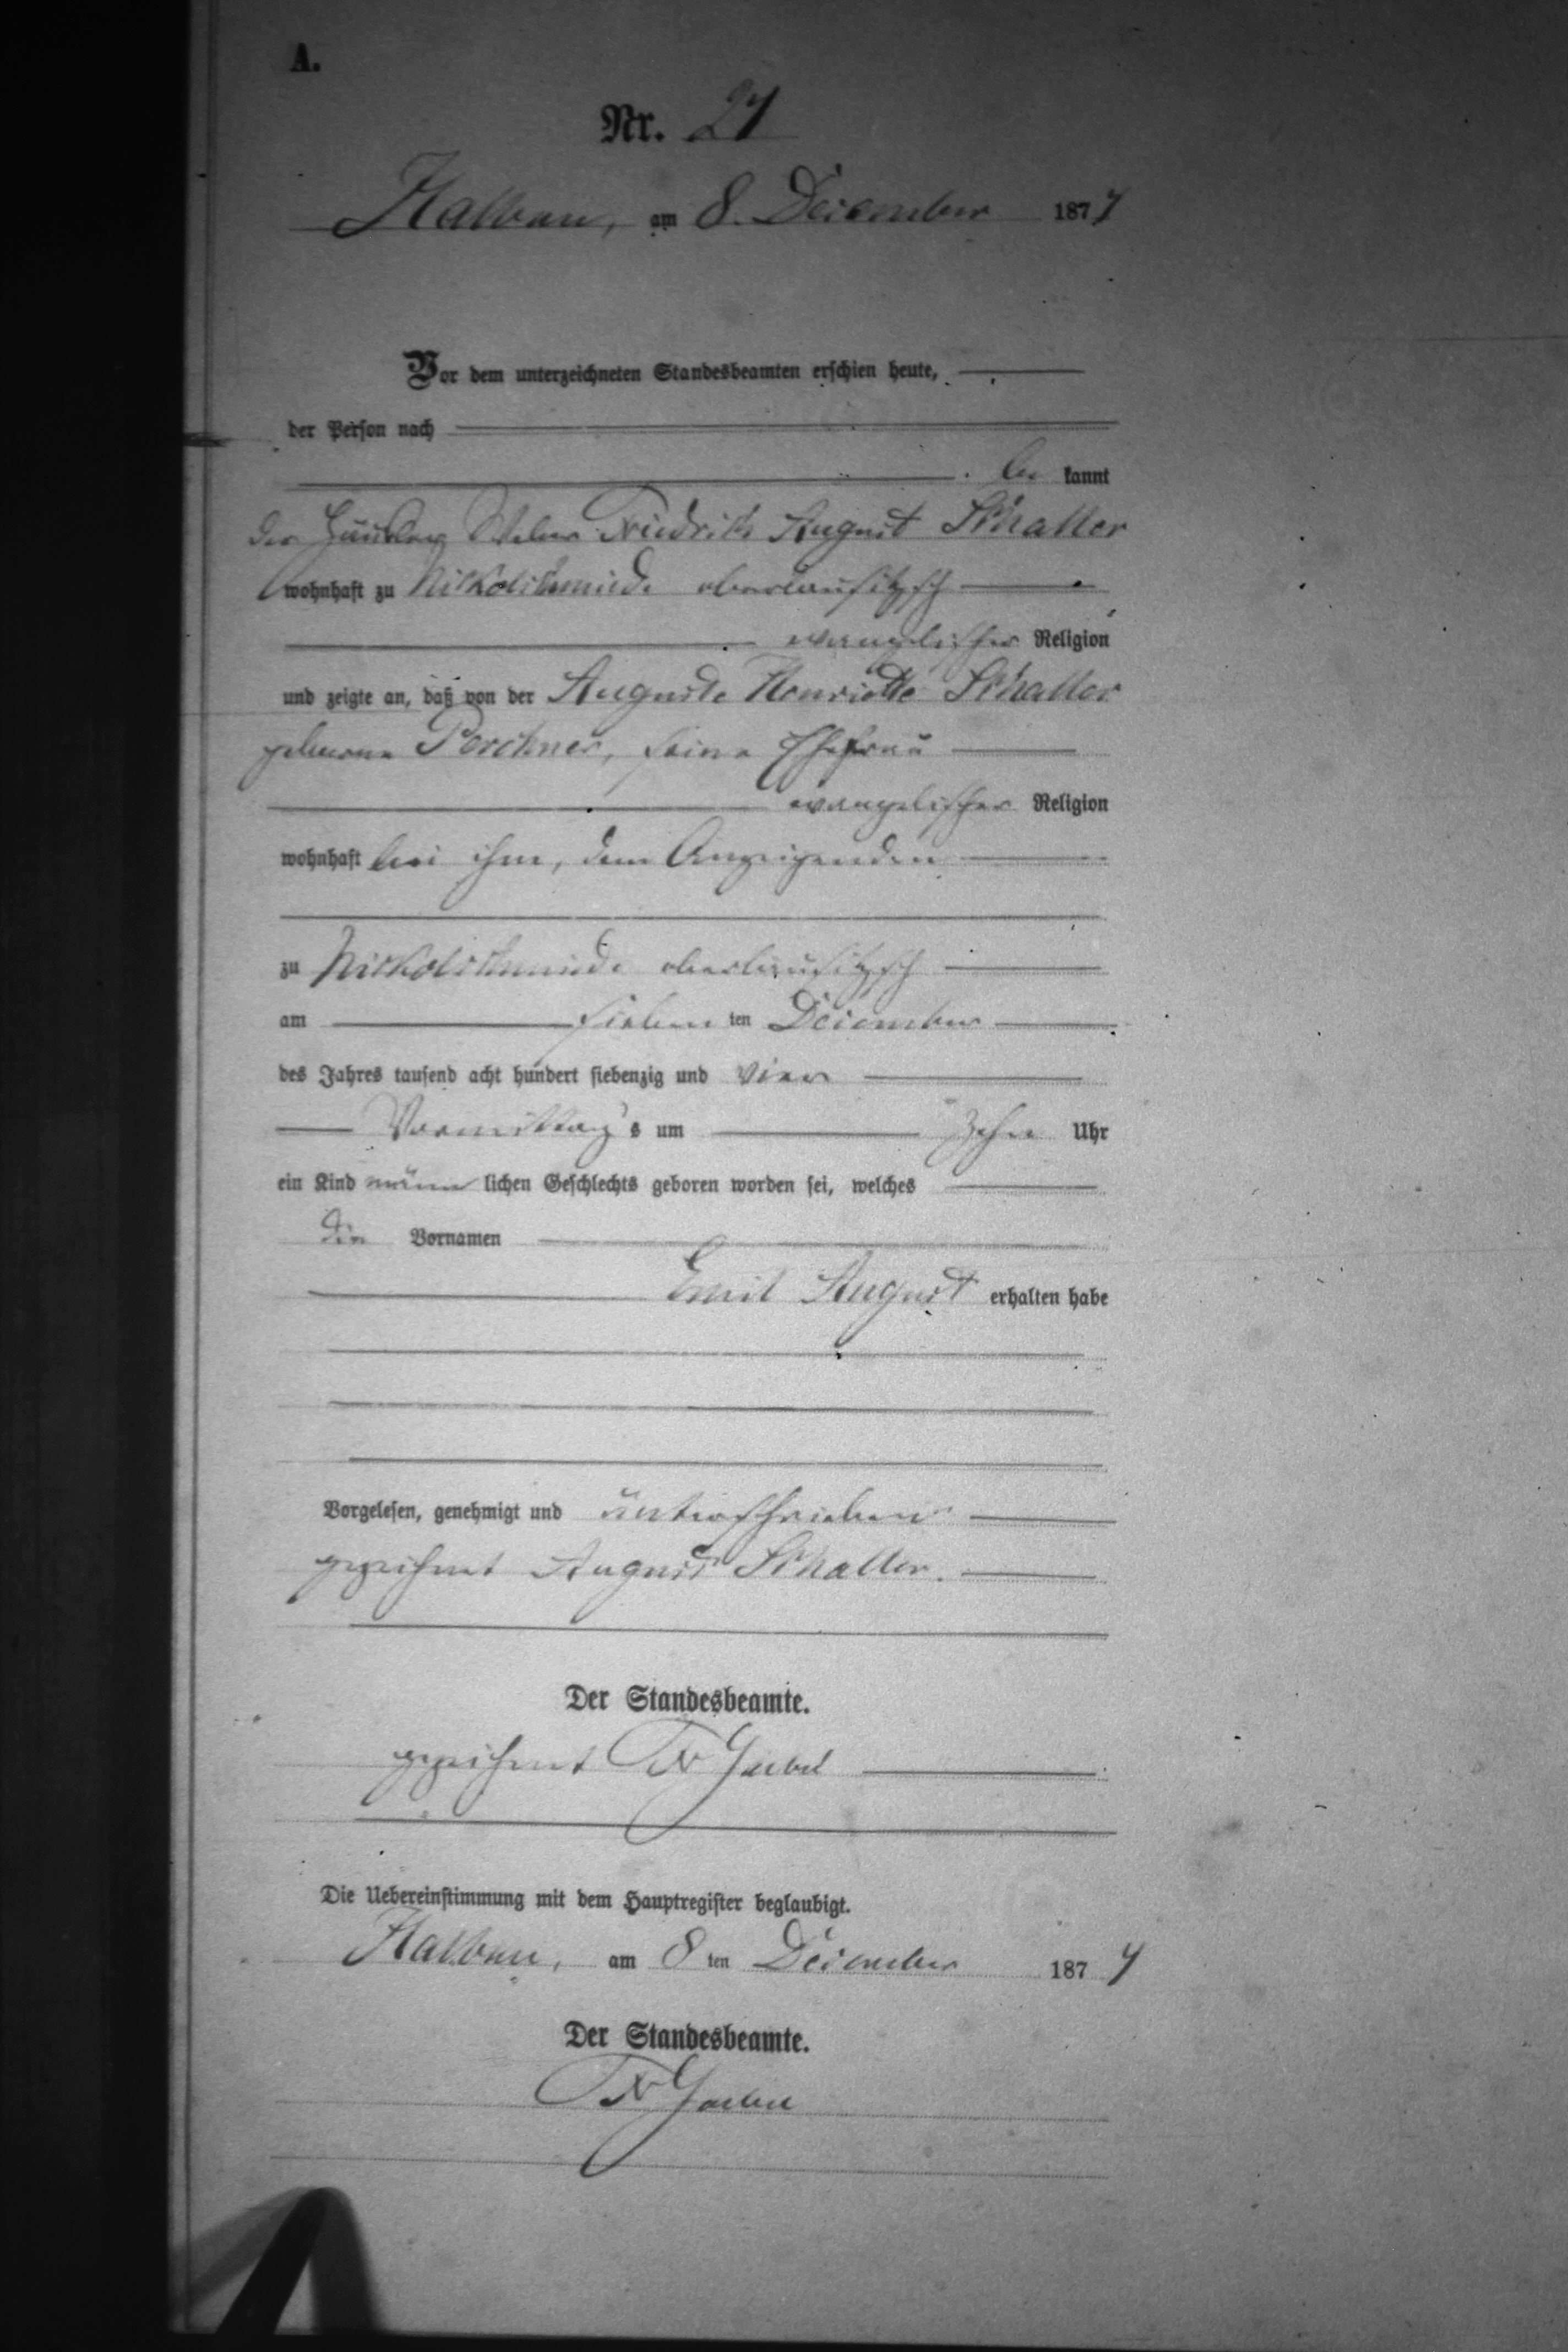 A.
Nr. 24
Halbau, am 8. December 1874
Vor dem unterzeichneten Standesbeamten erschien heute,
der Person nach
be kannt
der Häusler Weber Friedrich August Schaller
wohnhaft zu Nikolschmiede oberlausitzsch
evangelischer Religion
und zeigte an, daß von der Auguste Henriette Schaller
geborene Porchner, seine Ehefrau
evangelischer Religion
wohnhaft bei ihm, dem Anzeigenden
zu Nikolschmiede oberlausitzsch
am sieben ten December
des Jahres tausend acht hundert siebenzig und vier
Vormittag's um zehn Uhr
ein Kind männ lichen Geschlechts geboren worden sei, welches
die Vornamen
Emil August erhalten habe
Vorgelesen, genehmigt und unterschrieben
gezeichnet August Schaller.
Der Standesbeamte.
gezeichnet
Die Uebereinstimmung mit dem Hauptregister beglaubigt.
Halbau, am 8 ten December 1874
Der Standesbeamte.